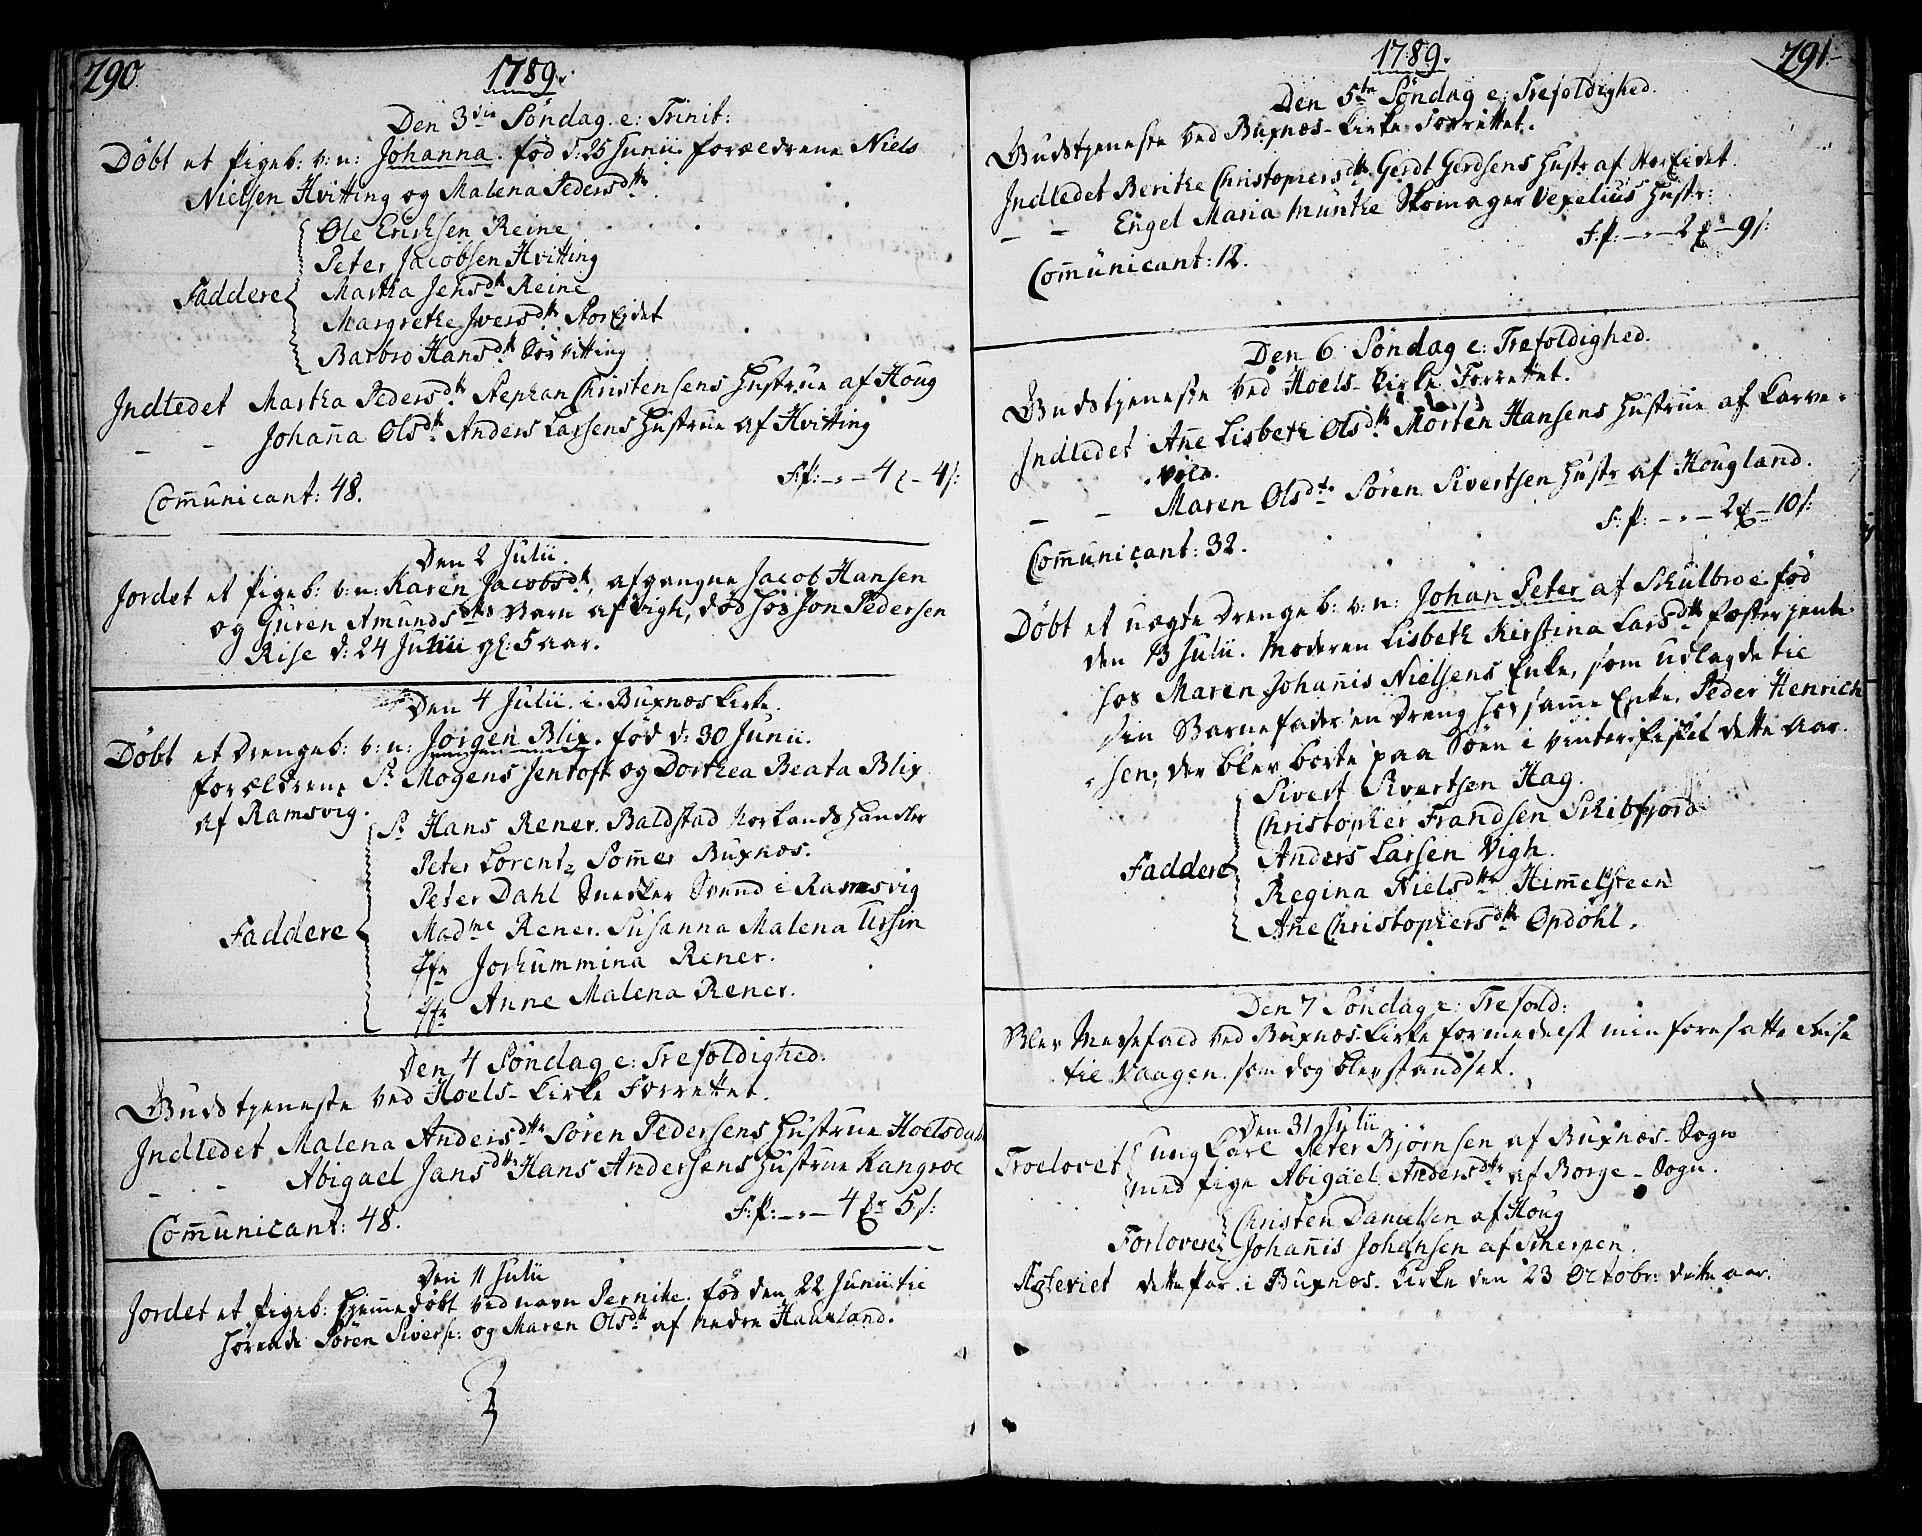 290.
1789.
Den 3die Söndag. e: Trinit:
Döbt et Pigeb: v: n: Johanna. föd d: 25 Junii. forældrene Niels
Nielsen Hvitting og Malena Pedersdtr
Ole Erichsen Reine
Peter Jacobsen Hvitting
Faddere Martha Jensdtr Reine
Margrethe Iversdtr StorEjdet
Barbro Hansdtr Sörhvitting
Indledet Martha Pedersdtr Stephan Christensens Hustrue af Houg
- - Johaña Olsdtr Anders Larsens Hustrue af Hvitting
F:P: - " - 4 - 4 s:
Com̄unicant: 48.
Den 2 Julii.
Jordet et Pigeb: v: n: Karen Jacobsdtr, afgangne Jacob Hansen
og Guren Amundsdtrs Barn af Vigh, död hos Jon Pedersen
Rise d: 24 Junii gl: 5 aar.
Den 4 Julii. i. Buxnæs Kirke.
Döbt et Drengeb: v: n: Jörgen Blix. föd d: 30 Junii.
forældrene Sr Mogens Jentoft og Dorthea Beata Blix
af Ramsvig.
Sr Hans Rener. Baldstad Norlands Handler
Peter Lorentz Som̄er Buxnæs.
Peter Dahl Snedker Svend i Ramsvig
Faddere Madme Rener. Susanna Malena Ursin
Jfr Jorhummina Rener.
Jfr Anne Malena Rener.
Den 4 Söndag e: Trefoldighed.
Gudstjeneste ved Hoels-Kirke Forrettet.
Indledet Malena Andersdtr Sören Pedersens Hustrue Hoelsdahl
- - Abigael Jansdtr Hans Andersens Hustrue Kangroe
F:P: - " - 4 - 5 s:
Com̄unicant: 48.
Den 11 Julii
Jordet et Pigeb: Hjem̄edöbt ved navn Pernike. föd den 22 Junii. til
hörende Sören Sivers: og Maren Olsdtr af Nedre Haukland.
1789.
291.
Den 5te Söndag e: Trefoldighed.
Gudstjeneste ved Buxnæs-Kirke Forrettet.
Indledet Berithe Christophersdtr Gerdt Gerdsens Hustr af StorEidet
- - Engel Maria Munthe Skomager Vexelius Hustr:
F:P: - " - 2 - 9 s:
Com̄unicant: 12.
Den 6 Söndag e: Trefoldighed.
Gudstjeneste ved Hoels-Kirke Forrettet.
Indledet Añe Lisbeth Olsdtr Morten Hansens Hustrue af Karve-
vold.
- - Maren Olsdtr Sören Sivertsen Hustr af Hougland.
F:P: - " - 2 - 10 s:
Com̄unicant: 32.
Döbt et uægte Drengeb: v: n: Johan Peter af Schulbroe föd
den 13 Julii. Moderen Lisbeth Kirstina Larsdtr fæster jente
hos Maren Johañis Nielsens Enke, som udlagde til
sin Barnefader en Dreng hos sam̄e Enke, Peder Henrich-
sen; der blev borte paa Söen i Vinterfisket dette Aar.
Sivert Sivertsen Hag.
Christopher Frandsen Schibfjord
Faddere Anders Larsen Vigh.
Regina Nielsdtr Him̄elsteen
Añe Christophersdtr Opdöhl.
Den 7 Söndag e: Trefold:
Blev Messefald ved Buxnæs-Kirke formedelst min foresatte Reise
til Vaagen. som dog blev standset.
Den 31 Julii
Troelovet ung Karl Peter Björnsen af Buxnæs-Sogn
med Pige Abigäel Andersdtr af Borge-Sogn.
Forlovere Christen Danielsen af Houg
Johañis Johansen af Scherpen.
Ægteviet dette Par. i Buxnæs-Kirke den 23 Octobr: dette aar.